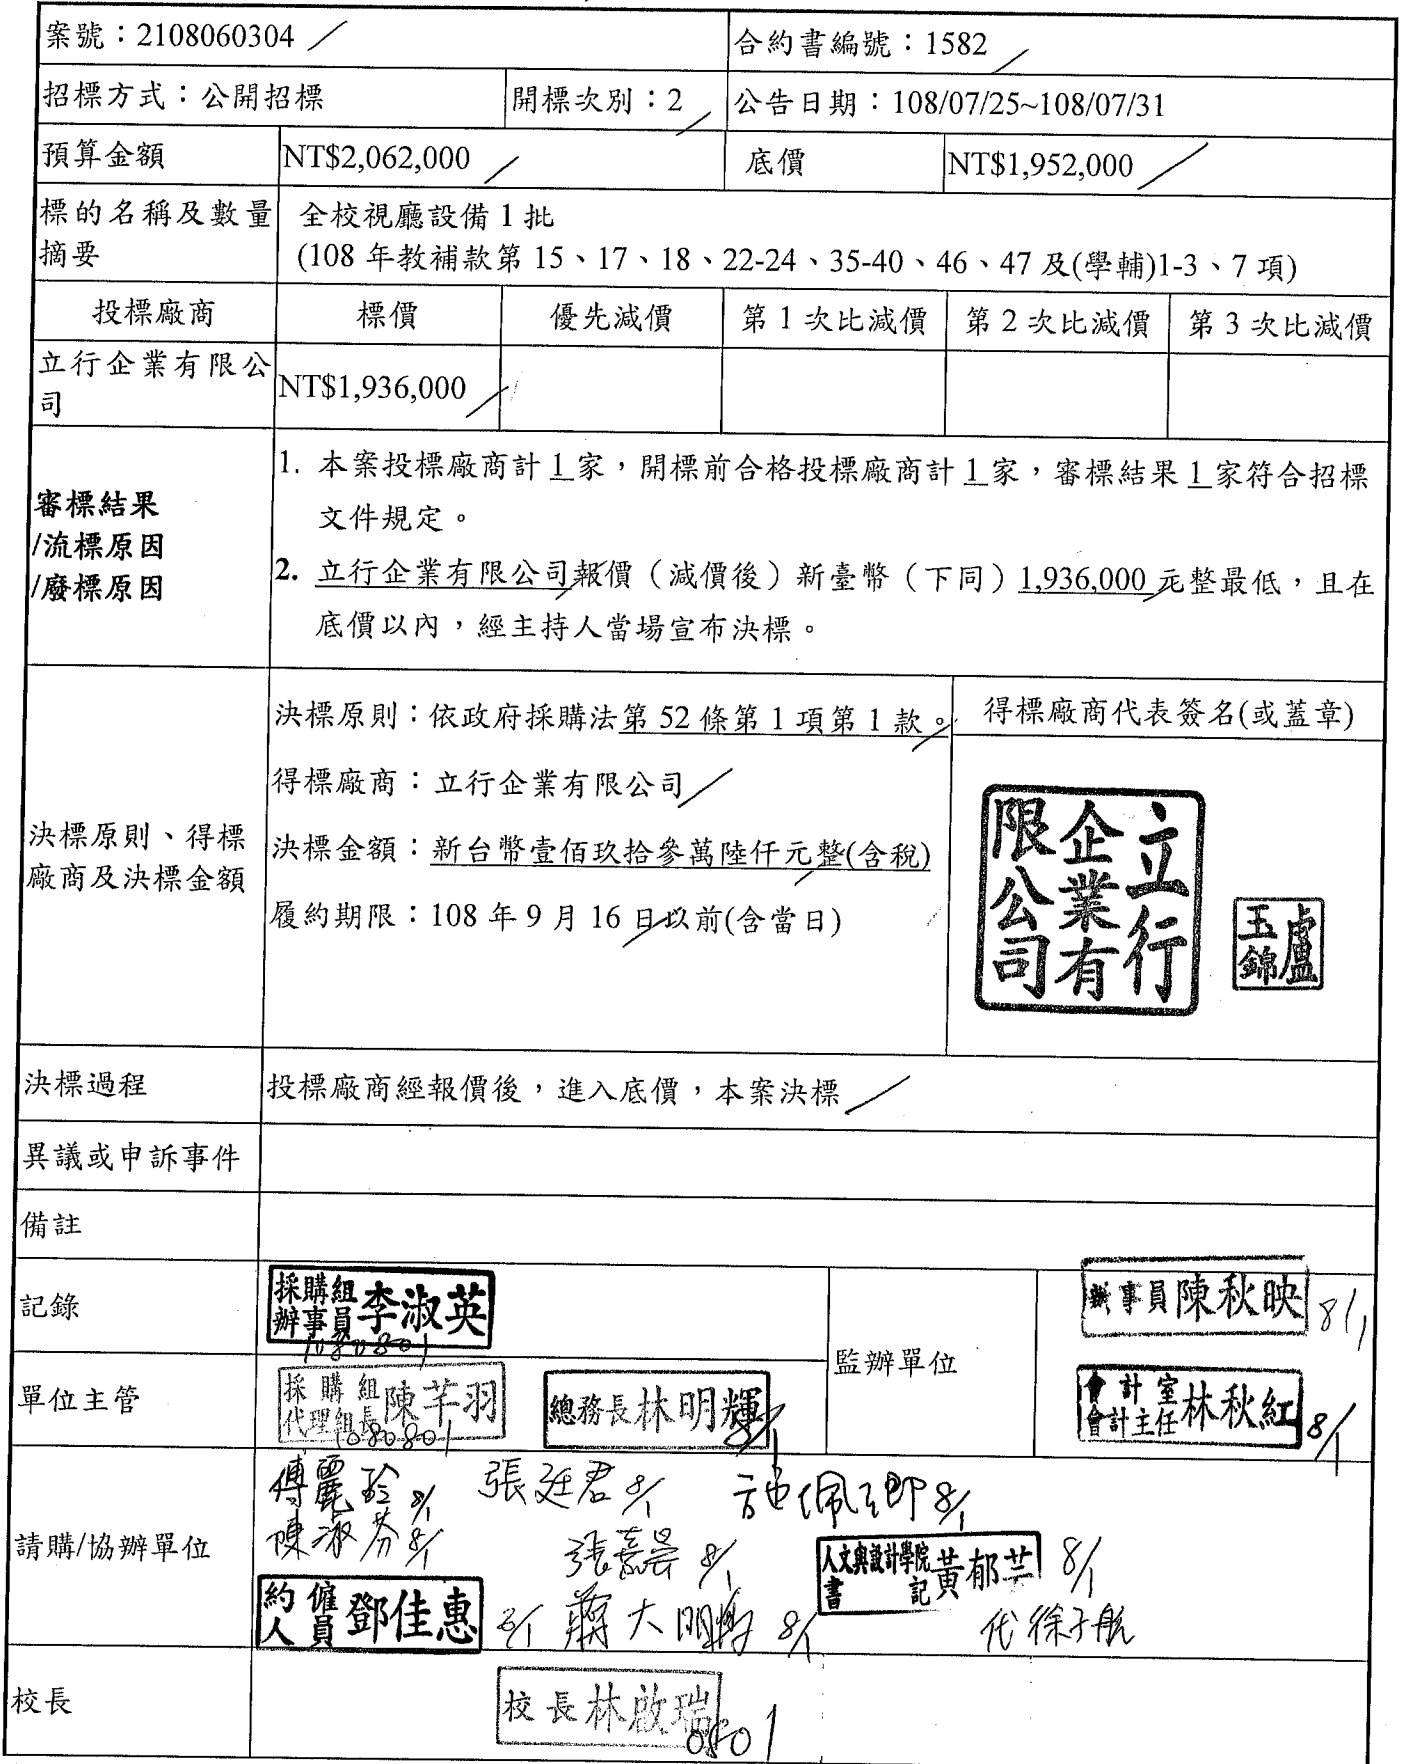 案號：2108060304
合約書編號：1582
招標方式：公開招標
開標次別：2
公告日期：108/07/25~108/07/31
預算金額
NT$2,062,000
底價
NT$1,952,000
標的名稱及數量
摘要
全校視廳設備 1 批
(108 年教補款第 15、17、18、22-24、35-40、46、47 及(學輔)1-3、7 項)
投標廠商
標價
優先減價
第 1 次比減價
第 2 次比減價
第 3 次比減價
立行企業有限公
司
NT$1,936,000
審標結果
/流標原因
/廢標原因
1. 本案投標廠商計 1 家，開標前合格投標廠商計 1 家，審標結果 1 家符合招標
文件規定。
2. 立行企業有限公司報價（減價後）新臺幣（下同）1,936,000 元整最低，且在
底價以內，經主持人當場宣布決標。
決標原則、得標
廠商及決標金額
決標原則：依政府採購法第 52 條第 1 項第 1 款。
得標廠商：立行企業有限公司
決標金額：新台幣壹佰玖拾參萬陸仟元整(含稅)
履約期限：108 年 9 月 16 日以前(含當日)
得標廠商代表簽名(或蓋章)
立行企業有限公司
盧玉錦
決標過程
投標廠商經報價後，進入底價，本案決標
異議或申訴事件
備註
記錄
採購組
辦事員 李淑英
1080801
監辦單位
辦事員 陳秋映 8/1
單位主管
採購組
代理組長 陳芊羽
1080801
總務長 林明輝 8/1
會計室
會計主任 林秋紅 8/1
請購/協辦單位
傅麗玲 8/1
張廷君 8/1
8/1
陳淑芬 8/1
8/1
人文與設計學院
書記 黃郁芸 8/1
約僱
人員 鄧佳惠 8/1
8/1
代 徐子航
校長
校長 林啟瑞
0801